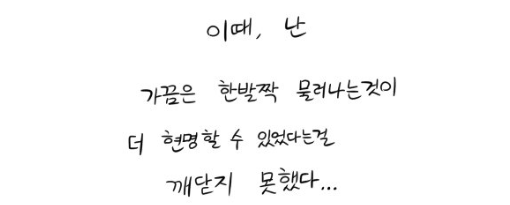 이때, 난
가끔은 한발짝 물러나는것이
더 현명할 수 있었다는걸
깨닫지 못했다...